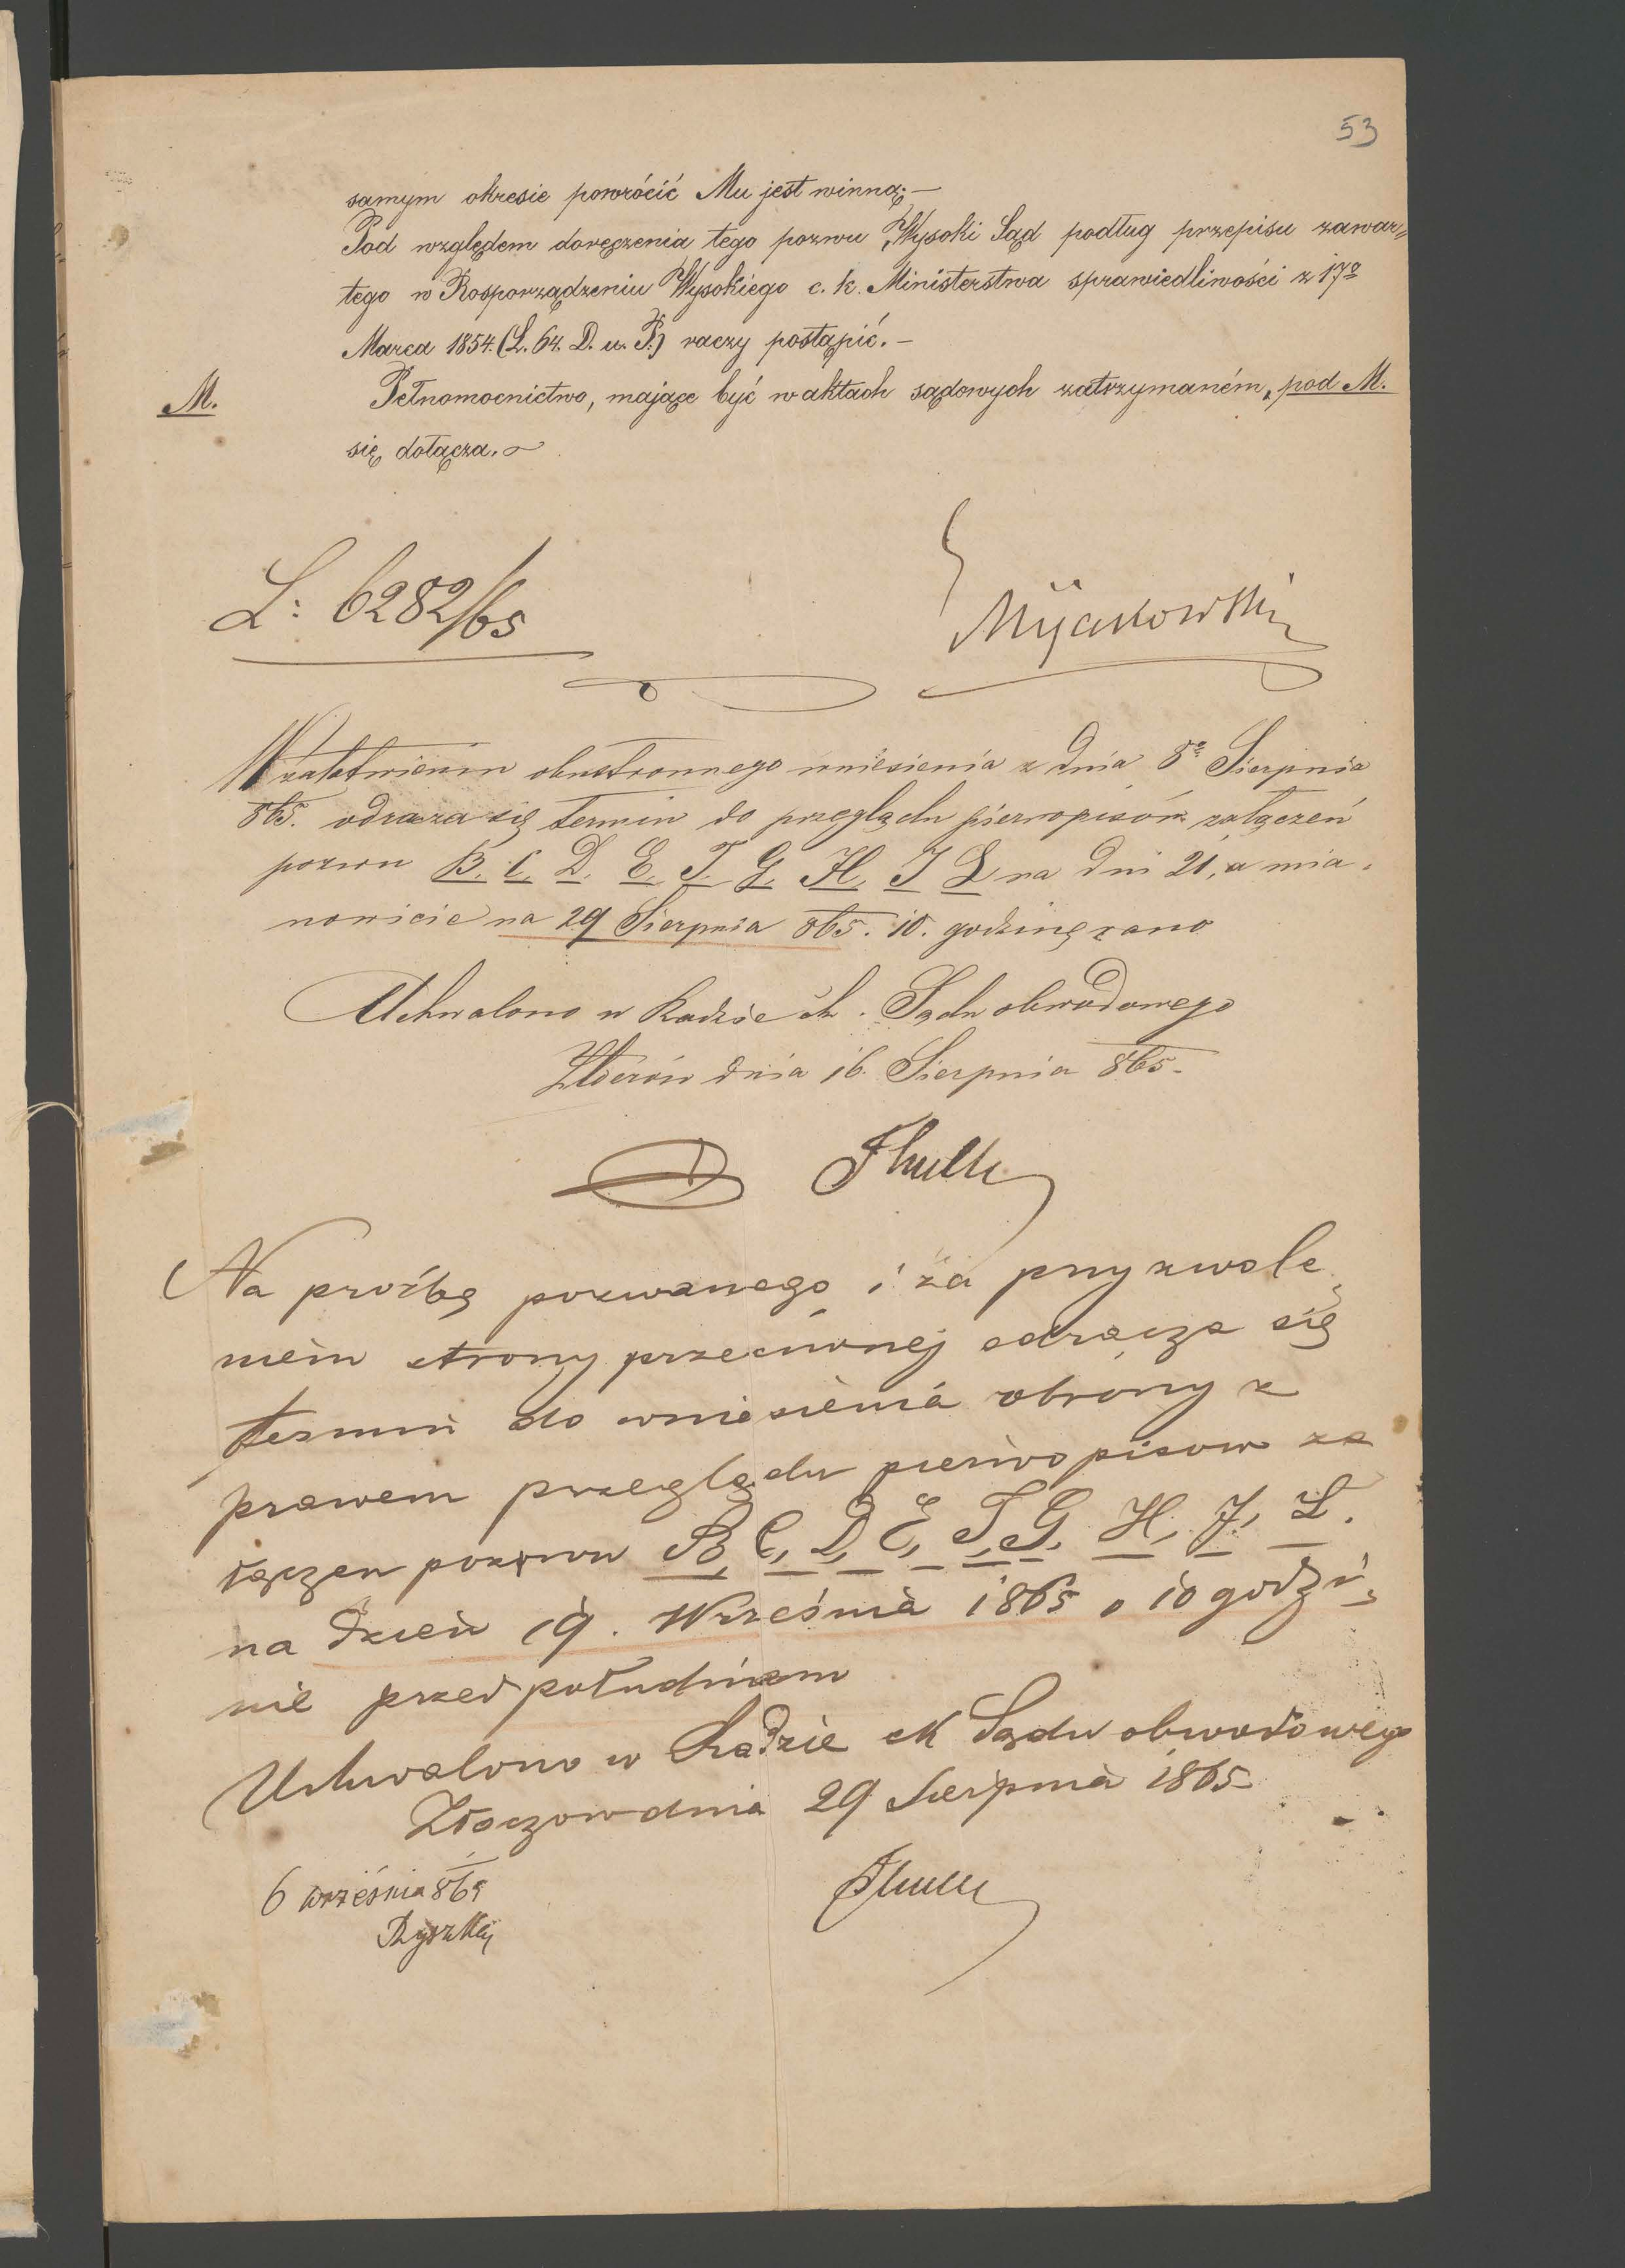 53
samym okresie powrócić Mu jest winną;—
Pod względem doręczenia tego pozwu, Wysoki Sąd podług przepisu zawar=
tego w Rosporządzeniu Wysokiego c. k. Ministerstwa sprawiedliwości z 17º
Marca 1854. (L. 64. D. u. P.) raczy postąpić.—
M. Pełnomocnictwo, mające być w aktach sądowych zatrzymaném, pod M.
się dołącza.
L: 6282/65
Mijakowski
W załatwieniu obustronnego wniesienia z dnia 8º Sierpnia
865. odracza się termin do przeglądu pierwopisów załączeń
pozwu B. C. D. E. F. G. H. J L na dni 21, a mia-
nowicie na 29 Sierpnia 865. 10. godzinę rano
Uchwalono w Radzie ck. Sądu obwodowego
dnia 16. Sierpnia 865.
Thulli
Na proźbę pozwanego i za przyzwole
niem strony przeciwnej odracza się
termin do wniesienia obrony z
prawem przeglądu pierwopisow za
łączen pozwu B, C, D, E, F, G, H, J, L.
na dzień 19. Września 1865 o 10 godzi-
nie przedpołudniem
Uchwalono w Radzie ck Sądu obwodowego
Złoczow dnia 29 Sierpnia 1865
Thulli
6 września 865